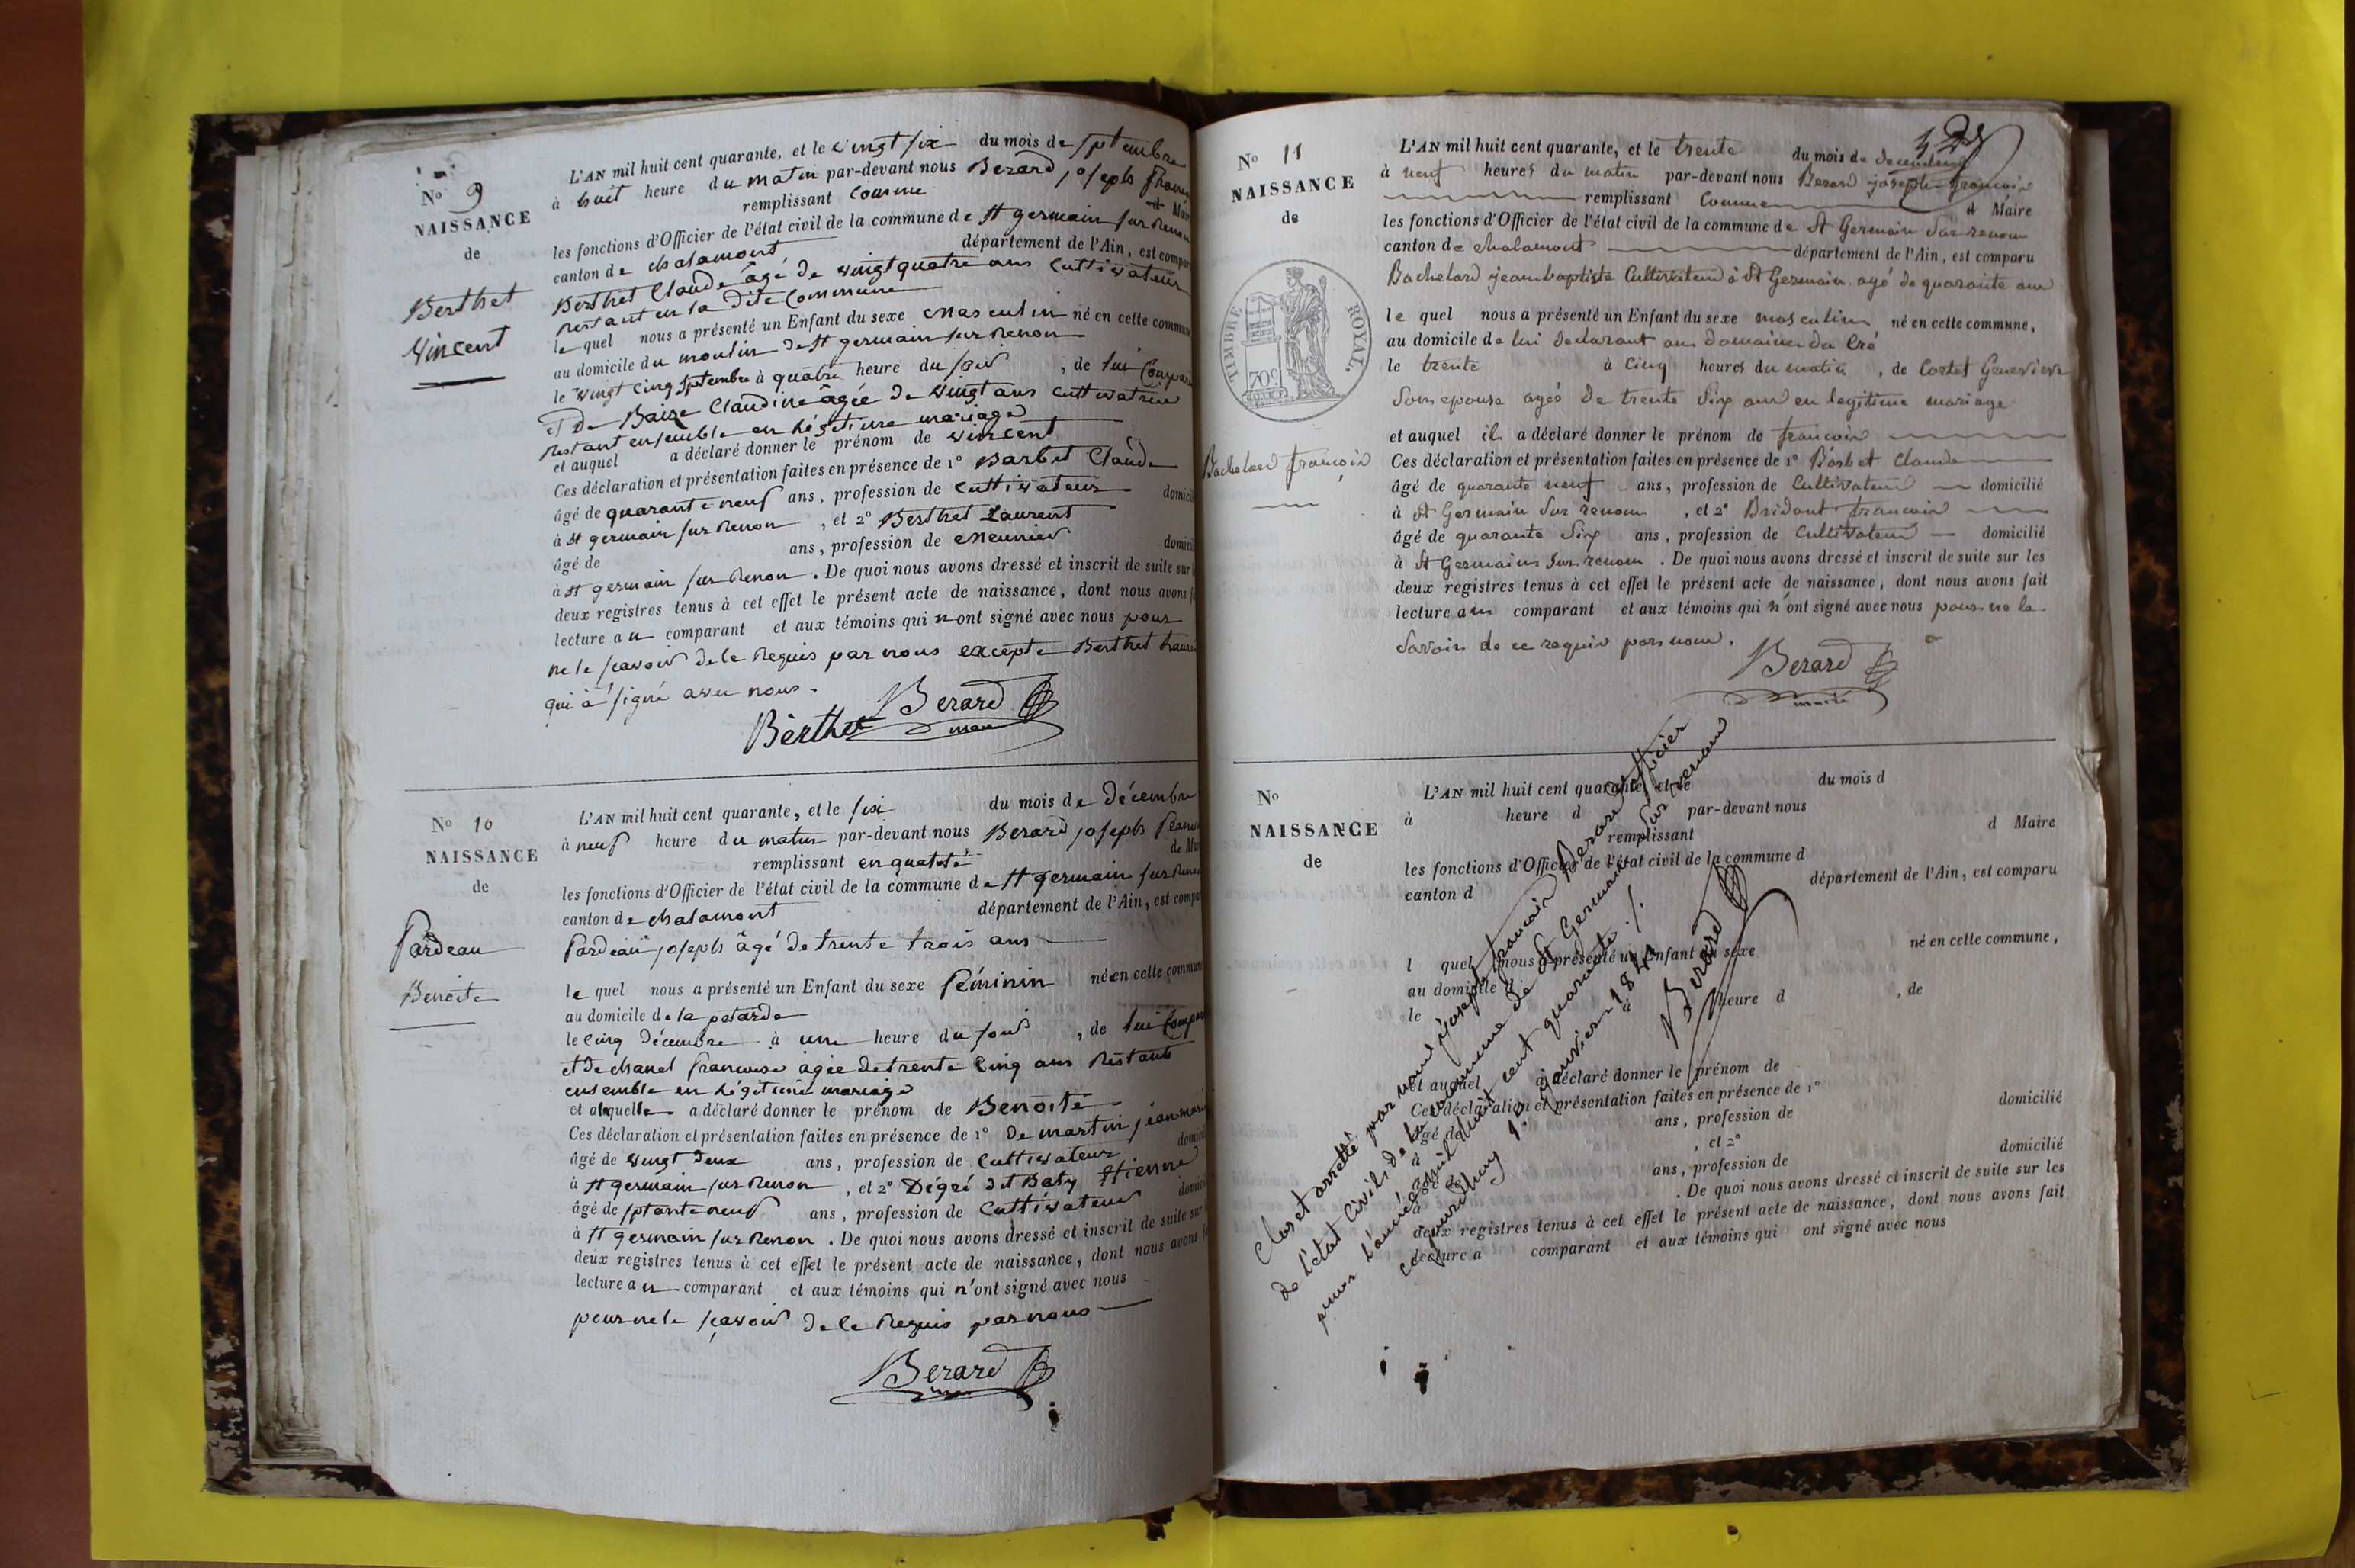 No 9
NAISSANCE
de
Berthet
Vincent
L'AN mil huit cent quarante, et le vingt six du mois de septembre
à huit heure du matin par-devant nous Berard joseph
remplissant Comme d Mair
les fonctions d'Officier de l'état civil de la commune de st germain sur Renon
canton de chalamont département de l'Ain, est compar
Berthet Claude âgé de vingt quatre ans Cultivateur
restant en la dite Commune
le quel nous a présenté un Enfant du sexe masculin né en cette commune
au domicile du moulin de st germain sur Renon
le vingt cinq septembre à quatre heure du soir , de lui
et de Baize Claudine âgée de vingt ans cultivatrice
restant ensemble en légitime mariage
et auquel a déclaré donner le prénom de vincent
Ces déclaration et présentation faites en présence de 1° Barbet Claude
âgé de quarante neuf ans, profession de Cultivateur domici
à st germain sur Renon , et 2° Berthet Laurent
âgé de ans, profession de Meunier domici
à st germain sur Renon . De quoi nous avons dressé et inscrit de suite sur
deux registres tenus à cet effet le présent acte de naissance, dont nous avons
lecture au comparant et aux témoins qui n ont signé avec nous pour
ne le sçavoir de le Requis par nous excepte Berthet
qui à signé avec nous.
Berthet Berard
maire
No 10
NAISSANCE
de
Pardeau
Benoite
L'AN mil huit cent quarante, et le six du mois de décembre
à neuf heure du matin par-devant nous Berard joseph
remplissant en qualité de Mai
les fonctions d'Officier de l'état civil de la commune de st germain sur Renon
canton de chalamont département de l'Ain, est compa
Pardeau joseph âgé de trente trois ans
le quel nous a présenté un Enfant du sexe féminin né en cette commune
au domicile de la
le cinq décembre à une heure du soir , de lui
et de chanel francoise agée de trente cinq ans restant
ensemble en légitime mariage
et alaquelle a déclaré donner le prénom de Benoite
Ces déclaration et présentation faites en présence de 1° de martin jean
âgé de vingt deux ans, profession de Cultivateur domici
à st germain sur Renon , et 2° Dégré dit Baty Etienne
âgé de sptante neuf ans, profession de Cultivateur domici
à st germain sur Renon . De quoi nous avons dressé et inscrit de suite sur
deux registres tenus à cet effet le présent acte de naissance, dont nous avons
lecture au comparant et aux témoins qui n'ont signé avec nous
pour ne le sçavoir de le Requis par nous
Berard
No 11
NAISSANCE
de
TIMBRE ROYAL
70c
Bachelard francois
L'AN mil huit cent quarante, et le trente du mois de decembre
à neuf heures du matin par-devant nous Berard joseph francois
remplissant Comme d Maire
les fonctions d'Officier de l'état civil de la commune de St Germain Sur renon
canton de chalamont département de l'Ain, est comparu
Bachelard jean baptiste Cultivateur à St Germain agé de quarante ans
le quel nous a présenté un Enfant du sexe masculin, né en cette commune,
au domicile de lui declarant au domaine du Cré
le trente à cinq heures du matin , de Cortet Genevieve
Son epouse agée de trente Six ans en legitime mariage
et auquel il a déclaré donner le prénom de francois
Ces déclaration et présentation faites en présence de 1° Barbet Claude
âgé de quarante neuf ans, profession de Cultivateur domicilié
à St Germain Sur renon , et 2° Bridont francois
âgé de quarante Six ans, profession de Cultivateur domicilié
à St Germain Sur renon . De quoi nous avons dressé et inscrit de suite sur les
deux registres tenus à cet effet le présent acte de naissance, dont nous avons fait
lecture au comparant et aux témoins qui n'ont signé avec nous pour ne la
Savoir de ce requis par nous.
Berard
maire
No
NAISSANCE
de
L'AN mil huit cent quarante, et le du mois d
à heure d par-devant nous
remplissant d Maire
les fonctions d'Officier de l'état civil de la commune d
canton d département de l'Ain, est comparu
l quel nous a présenté un Enfant du sexe né en cette commune,
au domicile d
le à heure d , de
et auquel a déclaré donner le prénom de
Ces déclaration et présentation faites en présence de 1°
âgé de ans, profession de domicilié
à , et 2°
âgé de ans, profession de domicilié
à . De quoi nous avons dressé et inscrit de suite sur les
deux registres tenus à cet effet le présent acte de naissance, dont nous avons fait
lecture a comparant et aux témoins qui ont signé avec nous
Clos et arretté par nous joseph francois Berard officier
de l'état Civils de la commune de St Germain Sur renon
pour l'année mil huit cent quarante ./.
cejourdhuy 1er janvier 1841
Berard